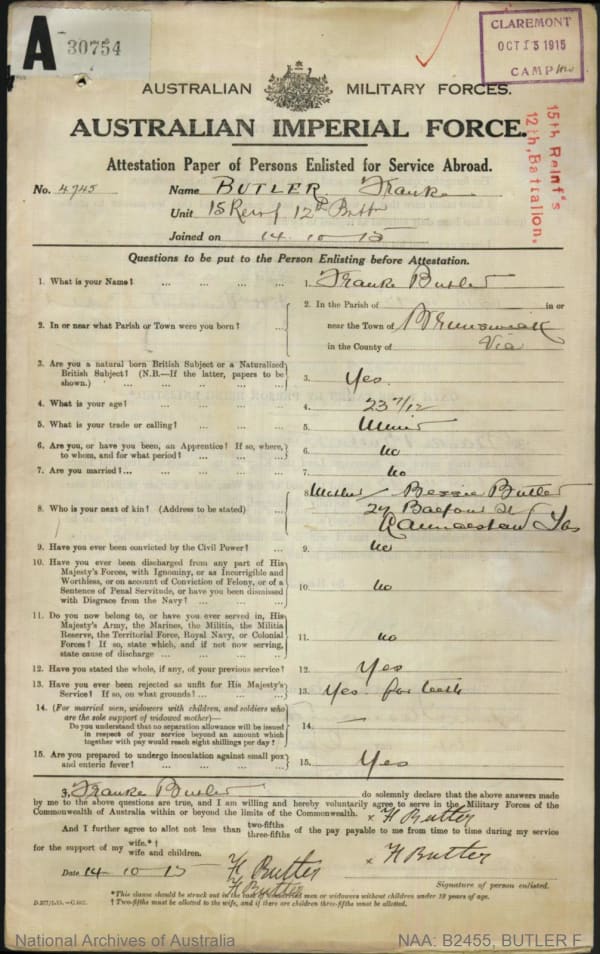 A 30754
CLAREMONT
OCT 15 1915
CAMP
AUSTRALIAN MILITARY FORCES.
AUSTRALIAN IMPERIAL FORCE.
15th Reinf's
12th, Battalion.
Attestation Paper of Persons Enlisted for Service Abroad.
No. 4745 Name BUTLER Franke
Unit 15 Reinf 12th Battn
Joined on 14.10.15
Questions to be put to the Person Enlisting before Attestation.
1. What is your Name? ... ... ... ... 1. Franke Butler
2. In or near what Parish or Town were you born? ... 2. In the Parish of in or
near the Town of Brunswick
in the County of Vic
3. Are you a natural born British Subject or a Naturalized
British Subject? (N.B.—If the latter, papers to be
shown.) ... ... ... ... 3. Yes.
4. What is your age? ... ... ... ... 4. 23 7/12
5. What is your trade or calling? ... ... ... 5. Miner
6. Are you, or have you been, an Apprentice? If so, where,
to whom, and for what period? ... ... ... 6. No
7. Are you married? ... ... ... ... 7. No
8. Who is your next of kin? (Address to be stated) ... 8. Mother / Bessie Butler
27 Balfour St
Launceston Tas
9. Have you ever been convicted by the Civil Power? ... 9. no
10. Have you ever been discharged from any part of His
Majesty's Forces, with Ignominy, or as Incorrigible and
Worthless, or on account of Conviction of Felony, or of a
Sentence of Penal Servitude, or have you been dismissed
with Disgrace from the Navy? ... ... ... 10. no
11. Do you now belong to, or have you ever served in, His
Majesty's Army, the Marines, the Militia, the Militia
Reserve, the Territorial Force, Royal Navy, or Colonial
Forces? If so, state which, and if not now serving,
state cause of discharge ... ... ... 11. no
12. Have you stated the whole, if any, of your previous service? 12. Yes
13. Have you ever been rejected as unfit for His Majesty's
Service? If so, on what grounds? ... ... 13. Yes. for teeth
14. (For married men, widowers with children, and soldiers who
are the sole support of widowed mother)—
Do you understand that no separation allowance will be issued
in respect of your service beyond an amount which
together with pay would reach eight shillings per day? 14. —
15. Are you prepared to undergo inoculation against small pox
and enteric fever? ... ... ... 15. Yes
I, Franke Butler do solemnly declare that the above answers made
by me to the above questions are true, and I am willing and hereby voluntarily agree to serve in the Military Forces of the
Commonwealth of Australia within or beyond the limits of the Commonwealth. x H Butler
And I further agree to allot not less than two-fifths three-fifths of the pay payable to me from time to time during my service
for the support of my wife.*† wife and children. x H Butler
Date 14-10-15 H Butler
H Butler Signature of person enlisted.
*This clause should be struck out in the case of unmarried men or widowers without children under 18 years of age.
† Two-fifths must be allotted to the wife, and if there are children three-fifths must be allotted.
National Archives of Australia NAA: B2455, BUTLER F